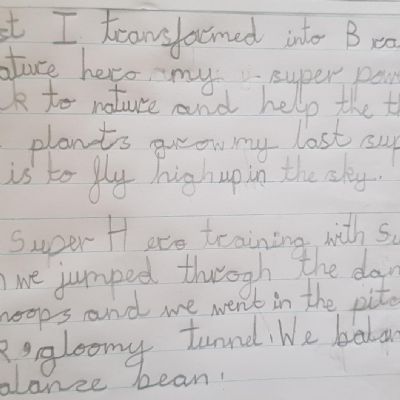 st I transformed into B ra
ature hero my super pow
k to nature and help the t
plants grow my last sup
is to fly high up in the sky.
Super H ero training with Su
n we jumped throgh the dan
hoops and we went in the pitc
k, gloomy tunnel. We balan
alanze bean.